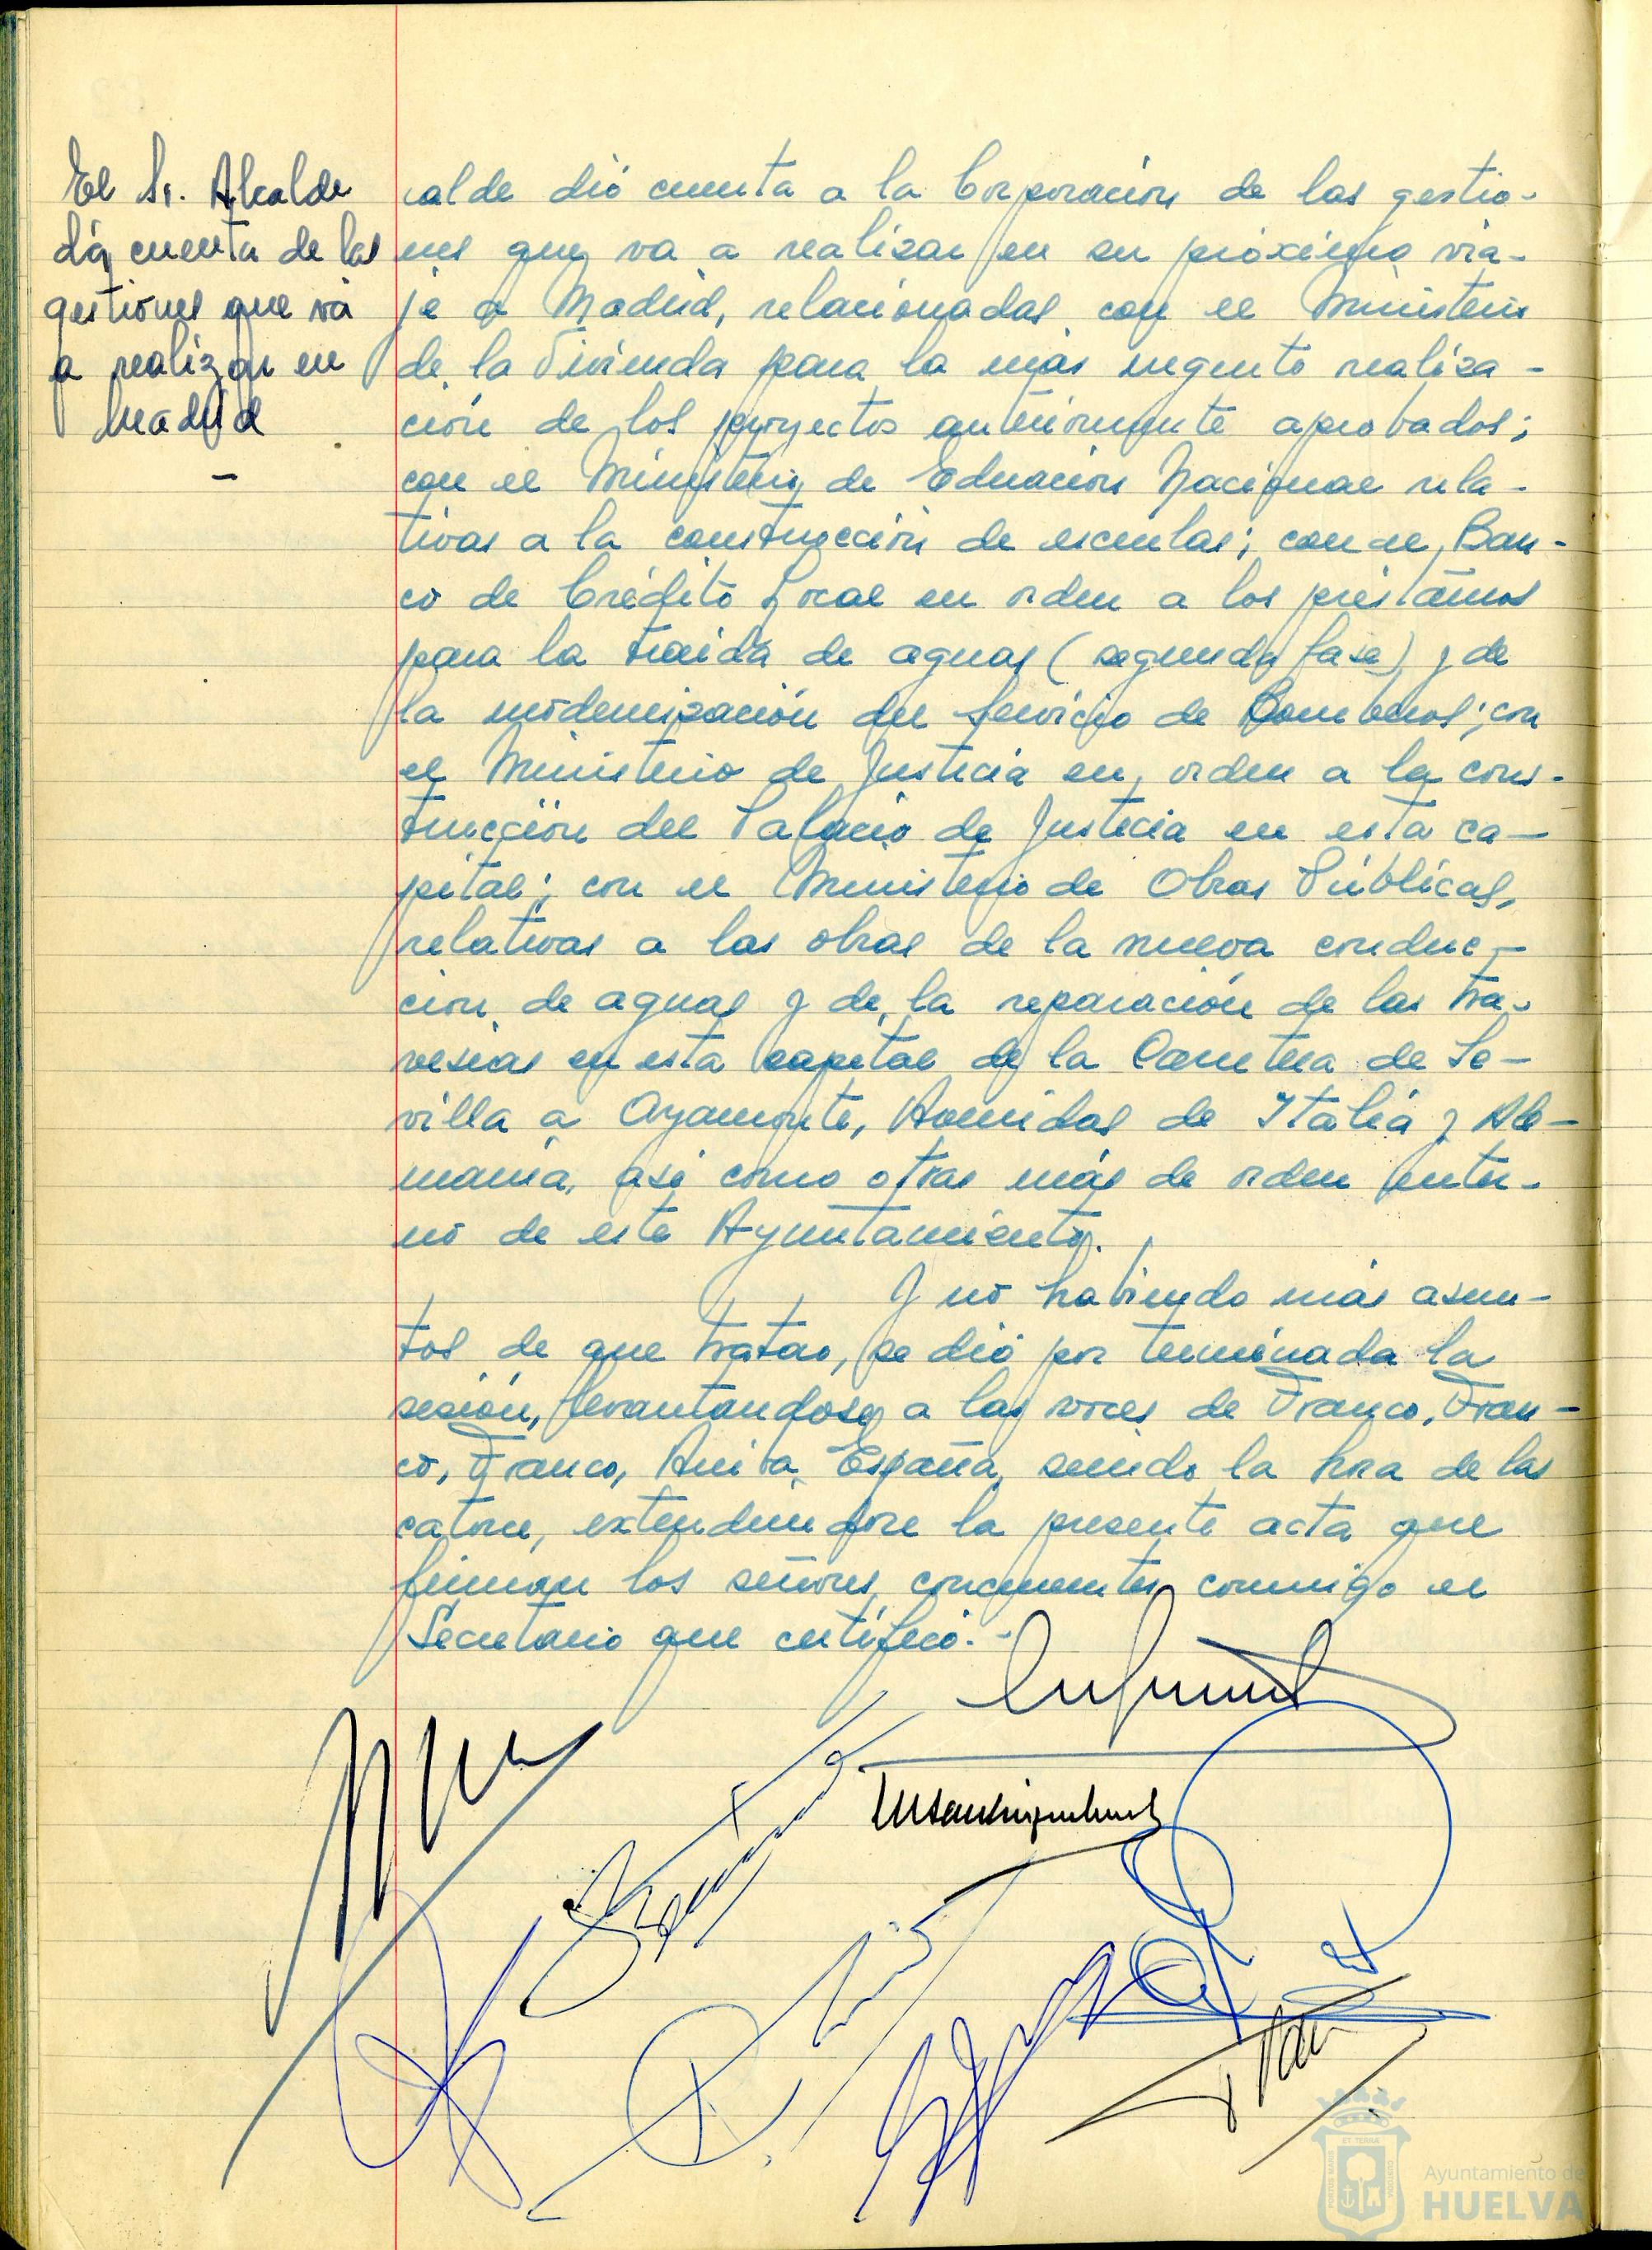 El Sr. Alcalde
da cuenta de las
gestiones que va
a realizar en
Madrid
calde dió cuenta a la Corporación de las gestio-
nes que va a realizar en su próximo via-
je a Madrid, relacionadas con el Ministerio
de la Vivienda para la más urgente realiza-
ción de los proyectos anteriormente aprobados;
con el Ministerio de Educación Nacional rela-
tivas a la construcción de escuelas; con el Ban-
co de Crédito Local en orden a los préstamos
para la traida de aguas (segunda fase) y de
la modernización del Servicio de Bomberos; con
el Ministerio de Justicia en orden a la cons-
trucción del Palacio de Justicia en esta ca-
pital; con el Ministerio de Obras Públicas,
relativas a las obras de la nueva conduc-
ción de aguas y de la reparación de las tra-
vesias en esta capital de la Carretera de Se-
villa a Ayamonte, Avenidas de Italia y Ale-
mania, asi como otras más de orden inter-
no de este Ayuntamiento.
Y no habiendo más asun-
tos de que tratar, se dió por terminada la
sesión, levantandose a las voces de Franco, Fran-
co, Franco, Arriba España, siendo la hora de las
catorce, extendiendose la presente acta que
firman los señores concurrentes conmigo el
Secretario que certifico.-
Ayuntamiento de
HUELVA